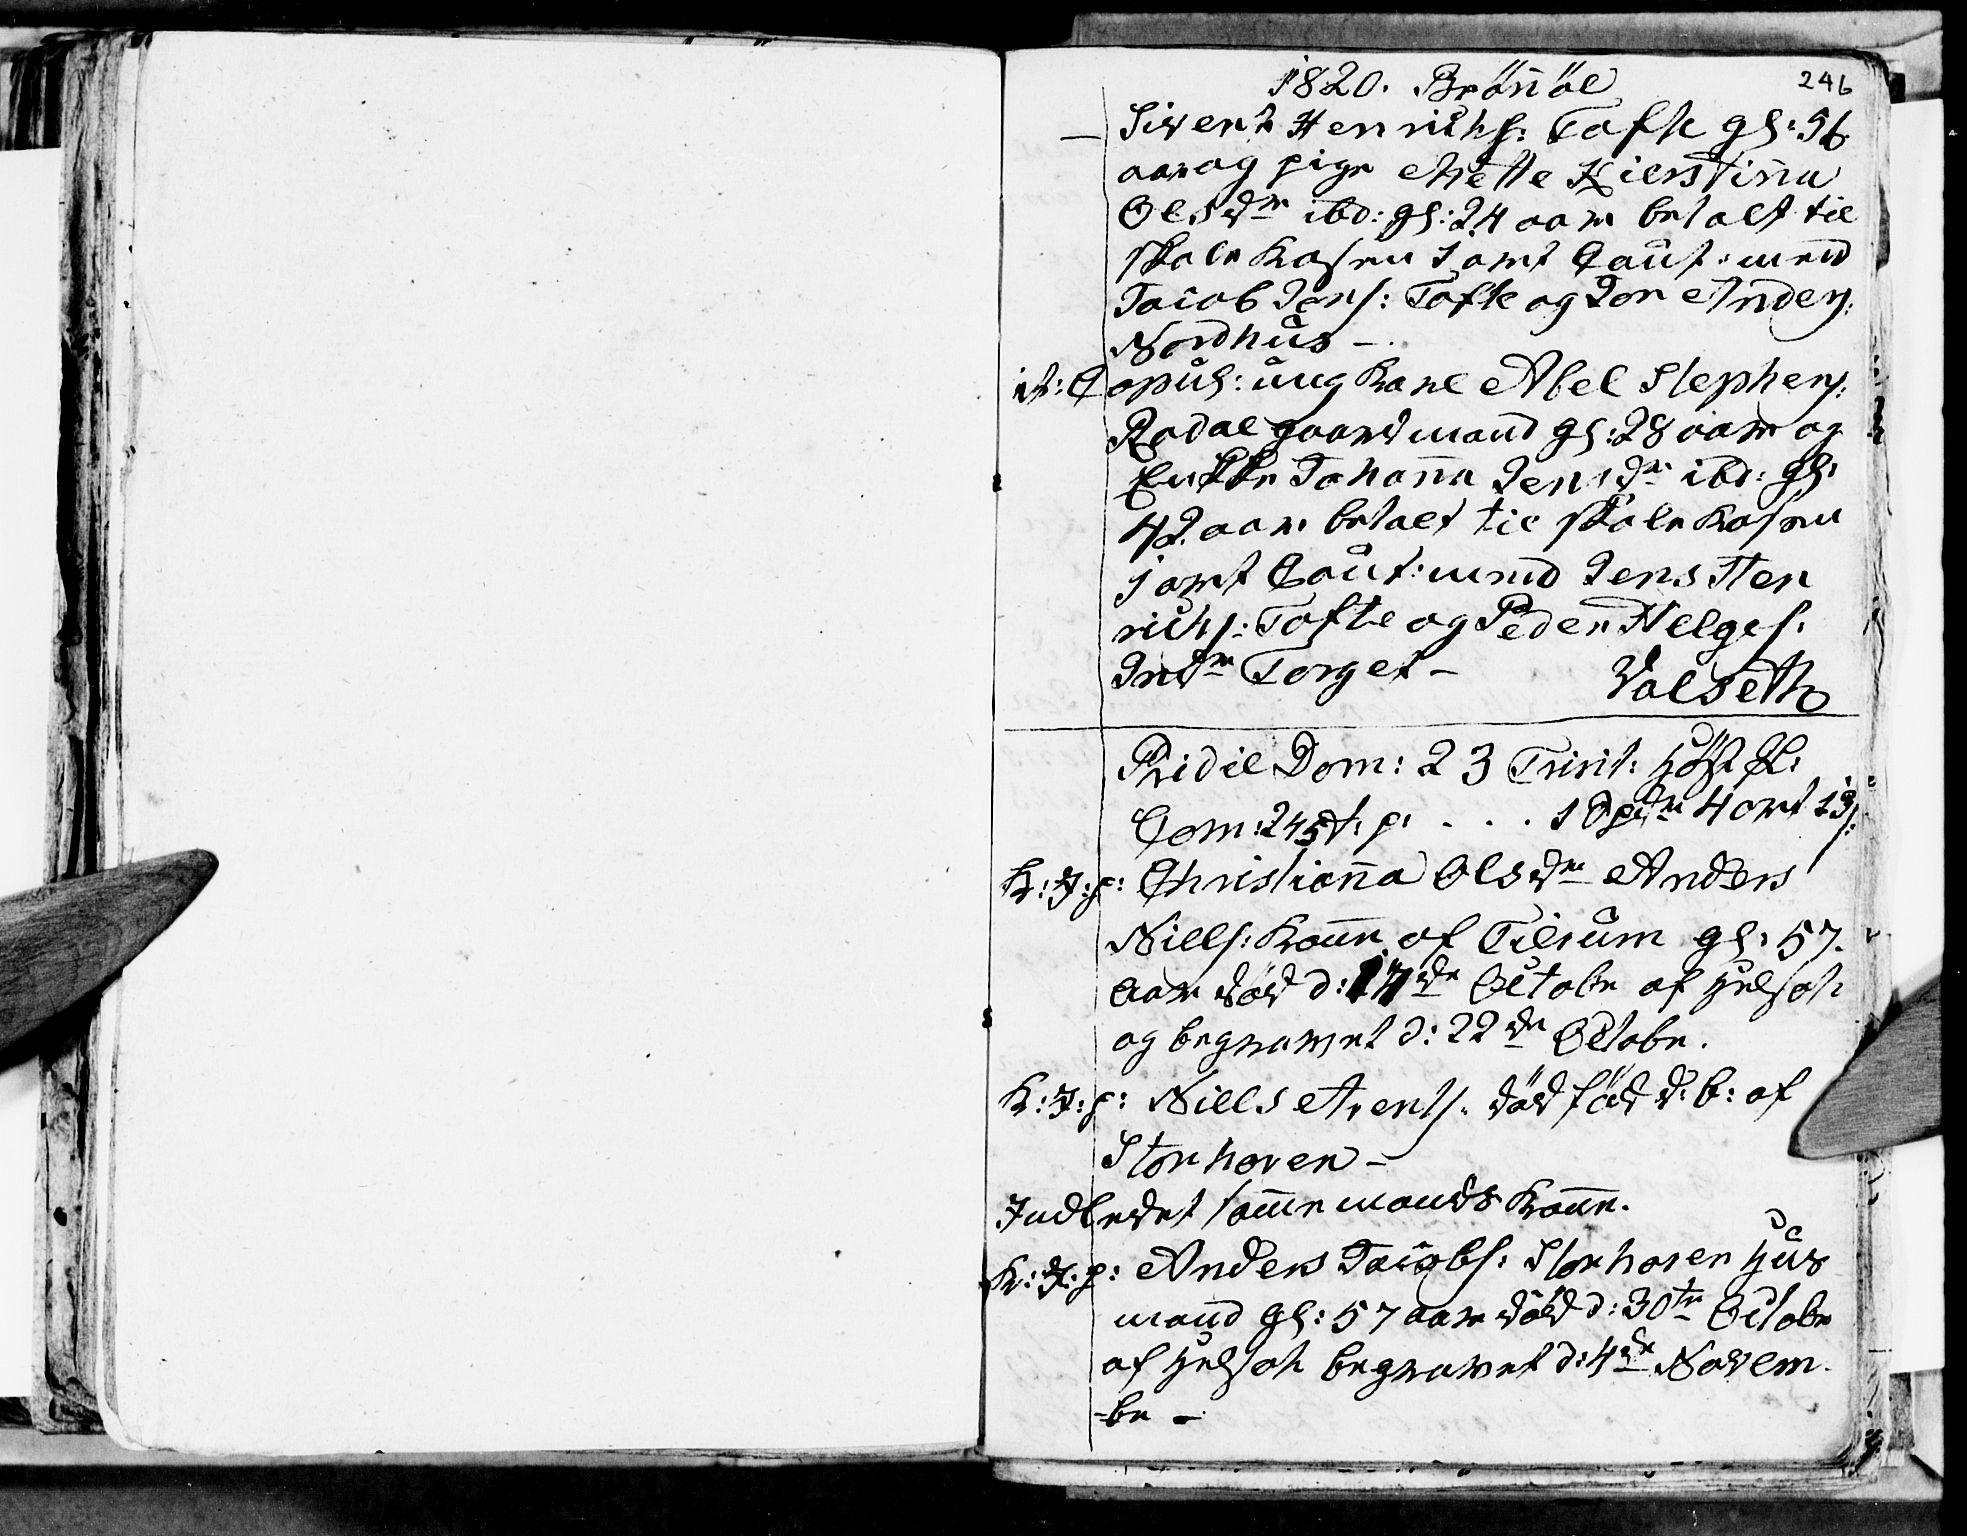 1820. Brönöe
246
Sivert Henrichs: Tofte gl: 56
aar og pige Mette Kierstinna
Olsdr ibd: gl: 24 aar betalt til
skole Kassen samt Caut: med
Jacob Jens: Tofte og Jon Anders:
Nordhus –
it: Copul: ung Karl Abel Stephens:
Rodal gaardmand gl: 28 aar og
Enkke Johanna Jensdr ibd: gl:
42 aar betalt til skole Kassen
samt Caut: med Jens Hen
richs: Tofte og Peder Helges:
Indr Torget –
Valseth
Pridie Dom: 23 Trinit: höst
Com: 245 p: . . . 1 Spdr 4 ort 13 s:
K: J: p: Christianna Olsdr Anders
Niells: Kone af Tilrum gl: 57.
aar död d: 17de Octobr af helsot
og begravet d: 22de Octobr.
K: J: p: Niells Arents: död föd d: b: af
Storhoven –
Indledet samme mands Kone.
K: J: p: Anders Jacobs: Storhoven Huus
mand gl: 57 aar död d: 30te Octobr
af helsot begravet d: 4de Novem
-br –